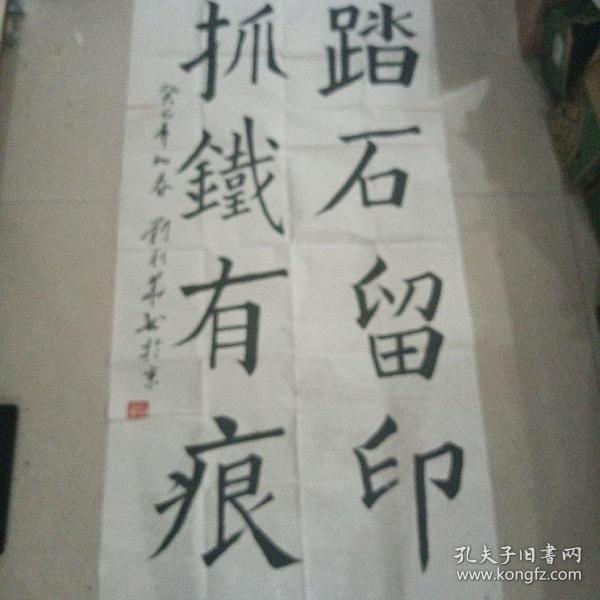 踏石留印
抓鐵有痕
癸巳年初春
孔夫子旧书网
www.kongfz.com